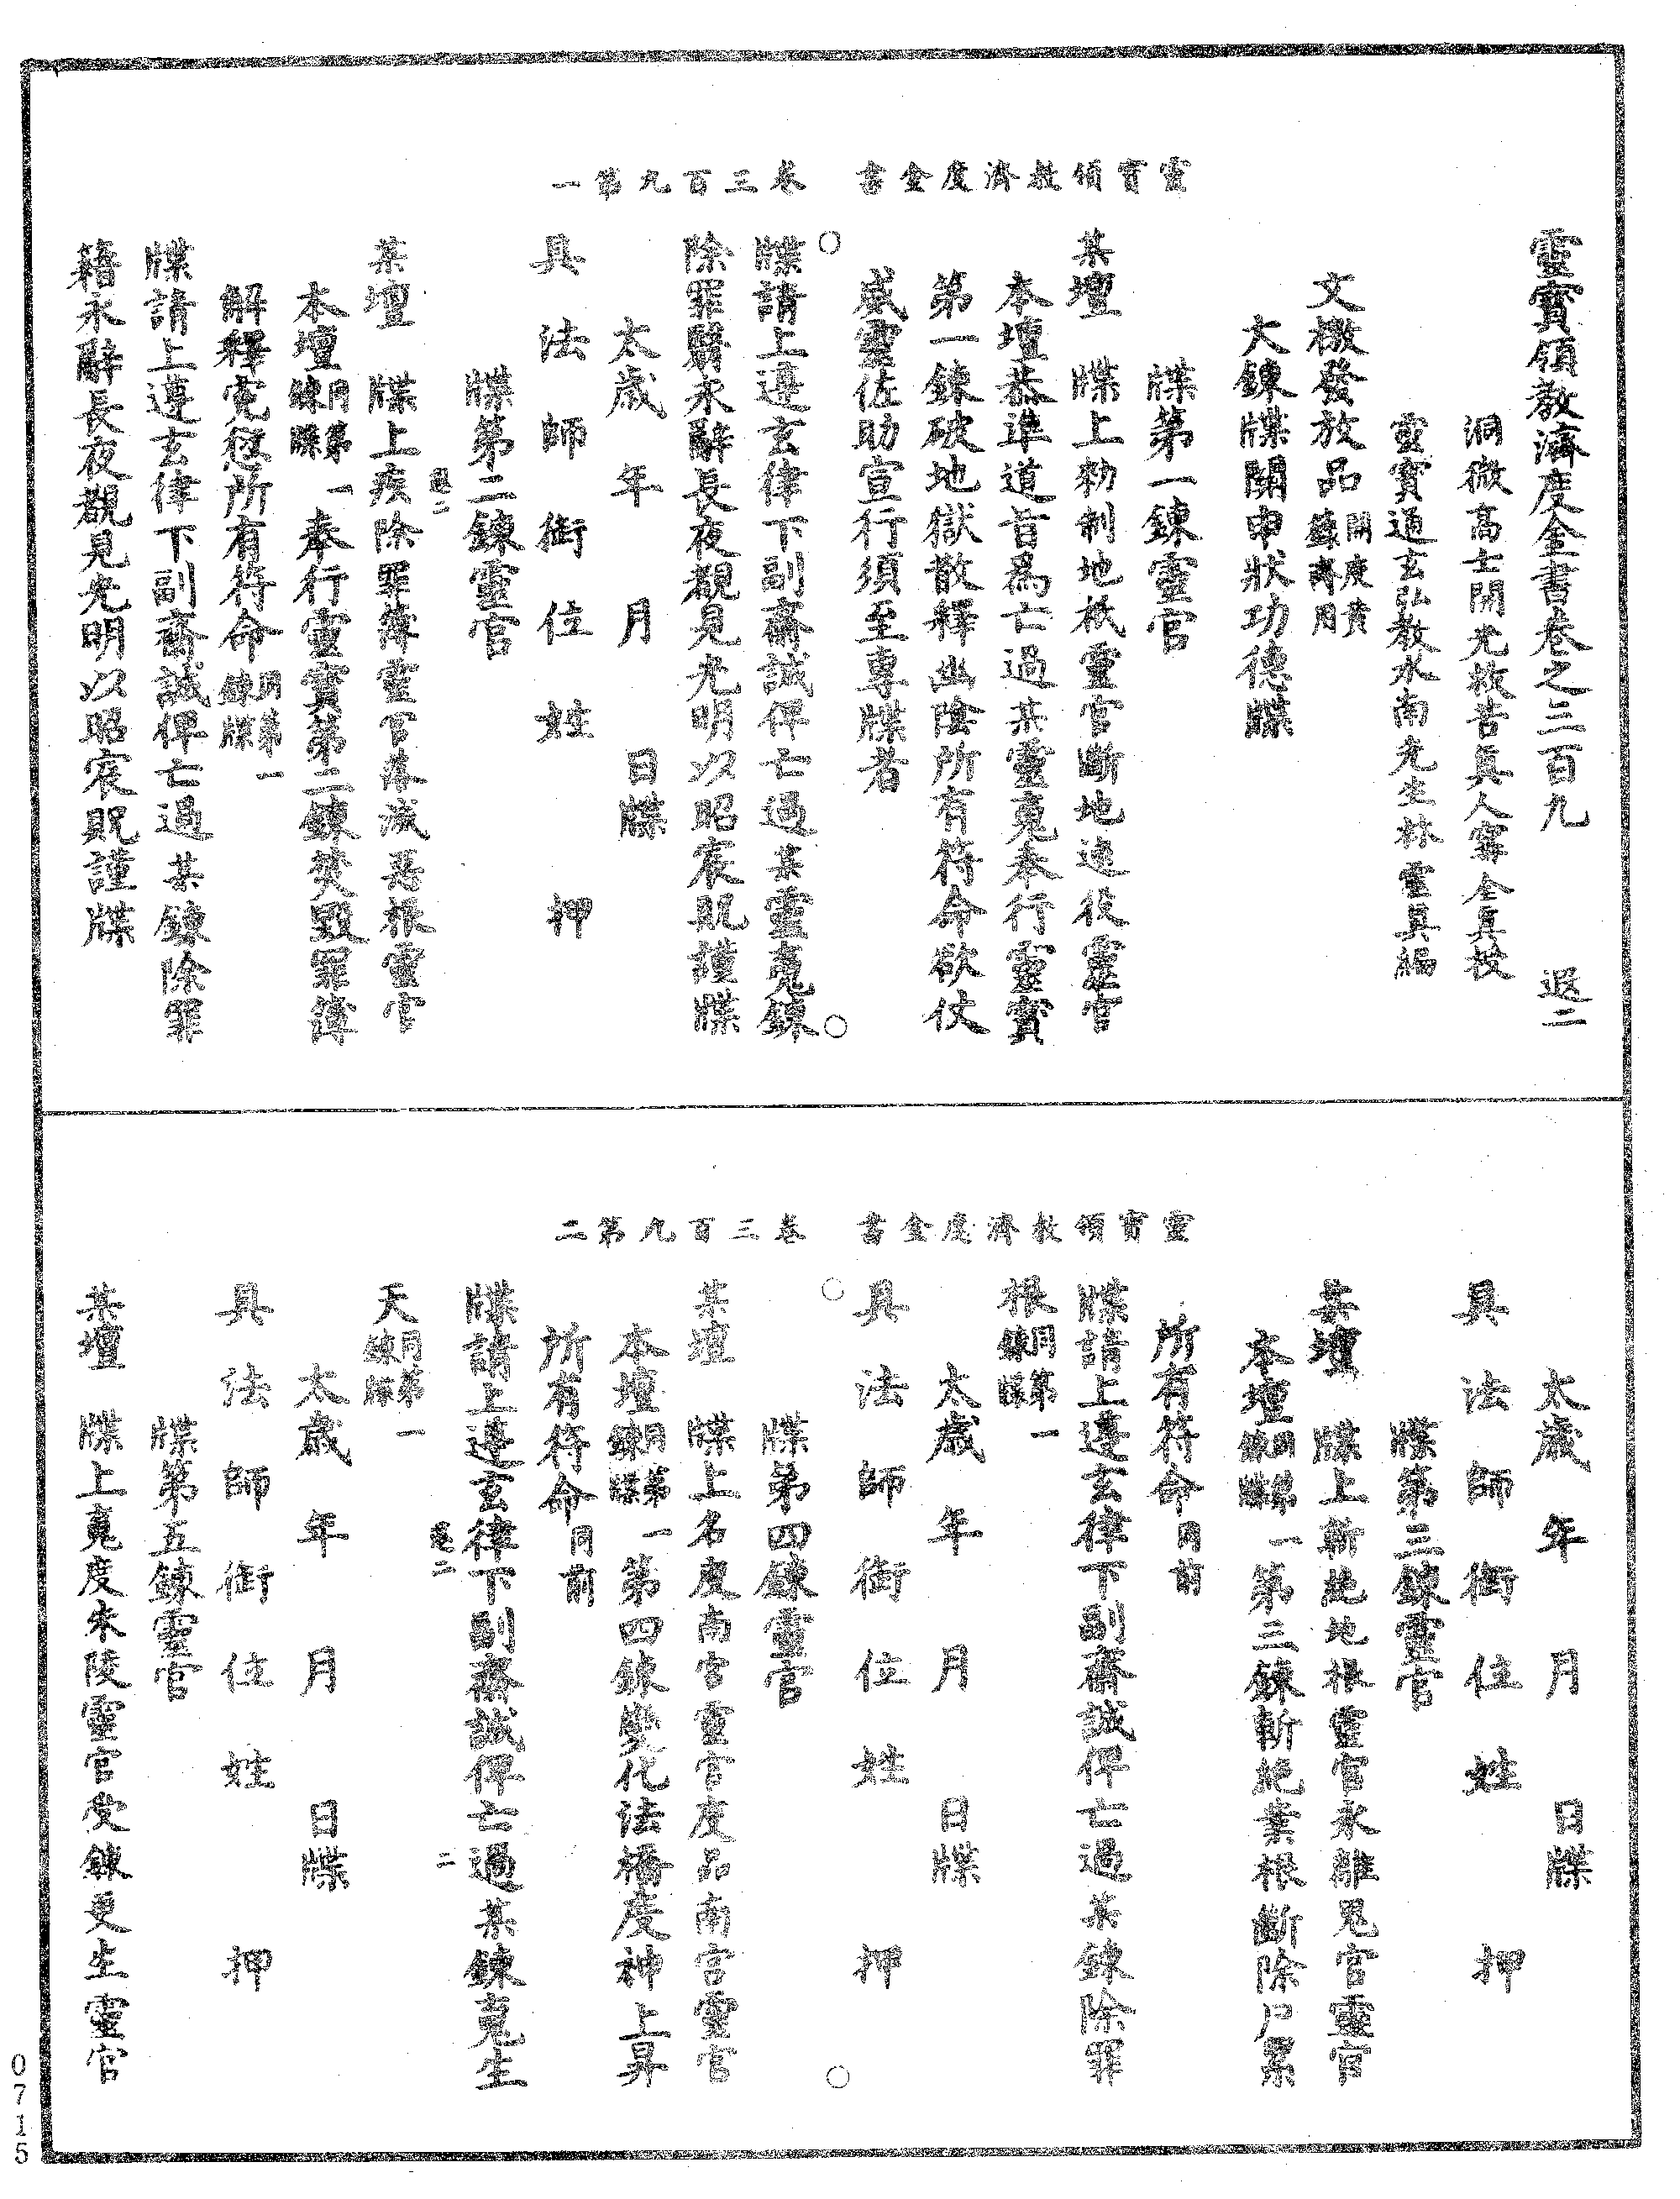 靈寶領教濟度金書　卷三百九第一
靈寶領教濟度金書卷之三百九　退二
洞微高士開光救苦眞人寗全眞授
靈寶通玄弘教水南先生林靈眞編
文檄發放品開度黃籙齋用
大鍊牒關申狀功德牒
牒第一鍊靈官
某壇　牒上勑制地祇靈官斷地逮役靈官
本壇恭準道旨爲亡過某靈䰟奉行靈寶
第一鍊破地獄散釋幽陰所有符命欲仗
威靈佐助宣行須至專牒者
牒請上遵玄律下副齋誠俾亡過某靈䰟鍊
除罪翳永辭長夜覩見光明以昭宸貺謹牒
太歲　年　月　日牒
具　法　師　銜　位　姓　押
牒第二鍊靈官
退二
某壇　牒上疾除罪簿靈官落滅惡根靈官
本壇同第一鍊牒奉行靈寶第二鍊焚毀罪簿
解釋寃愆所有符命同第一鍊牒
牒請上遵玄律下副齋誠俾亡過某鍊除罪
籍永辭長夜覩見光明以昭宸貺謹牒
靈寶領教濟度金書　卷三百九第二
太歲　年　月　日牒
具　法　師　銜　位　姓　押
牒第三鍊靈官
某壇　牒上斬絶地根靈官永離鬼官靈官
本壇同第一鍊牒第三鍊斬絶業根斷除尸累
所有符命同前
牒請上遵玄律下副齋誠俾亡過某鍊除罪
根同第一鍊牒
太歲　年　月　日牒
具　法　師　銜　位　姓　押
牒第四鍊靈官
某壇　牒上名度南宫靈官度品南宫靈官
本壇同第一鍊牒第四鍊變化法橋度神上昇
所有符命同前
退二　二
牒請上遵玄律下副齋誠俾亡過某鍊䰟生
天同第一鍊牒
太歲　年　月　日牒
具　法　師　銜　位　姓　押
牒第五鍊靈官
某壇　牒上䰟度朱陵靈官受鍊更生靈官
0715